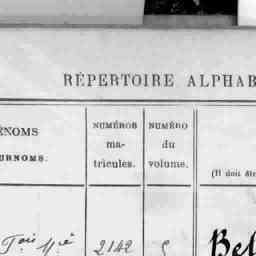 RÉPERTOIRE ALPHAB
ÉNOMS
URNOMS.
NUMÉROS
ma-
tricules.
NUMÉRO
du
volume.
(Il doit êtr
2142
Bel